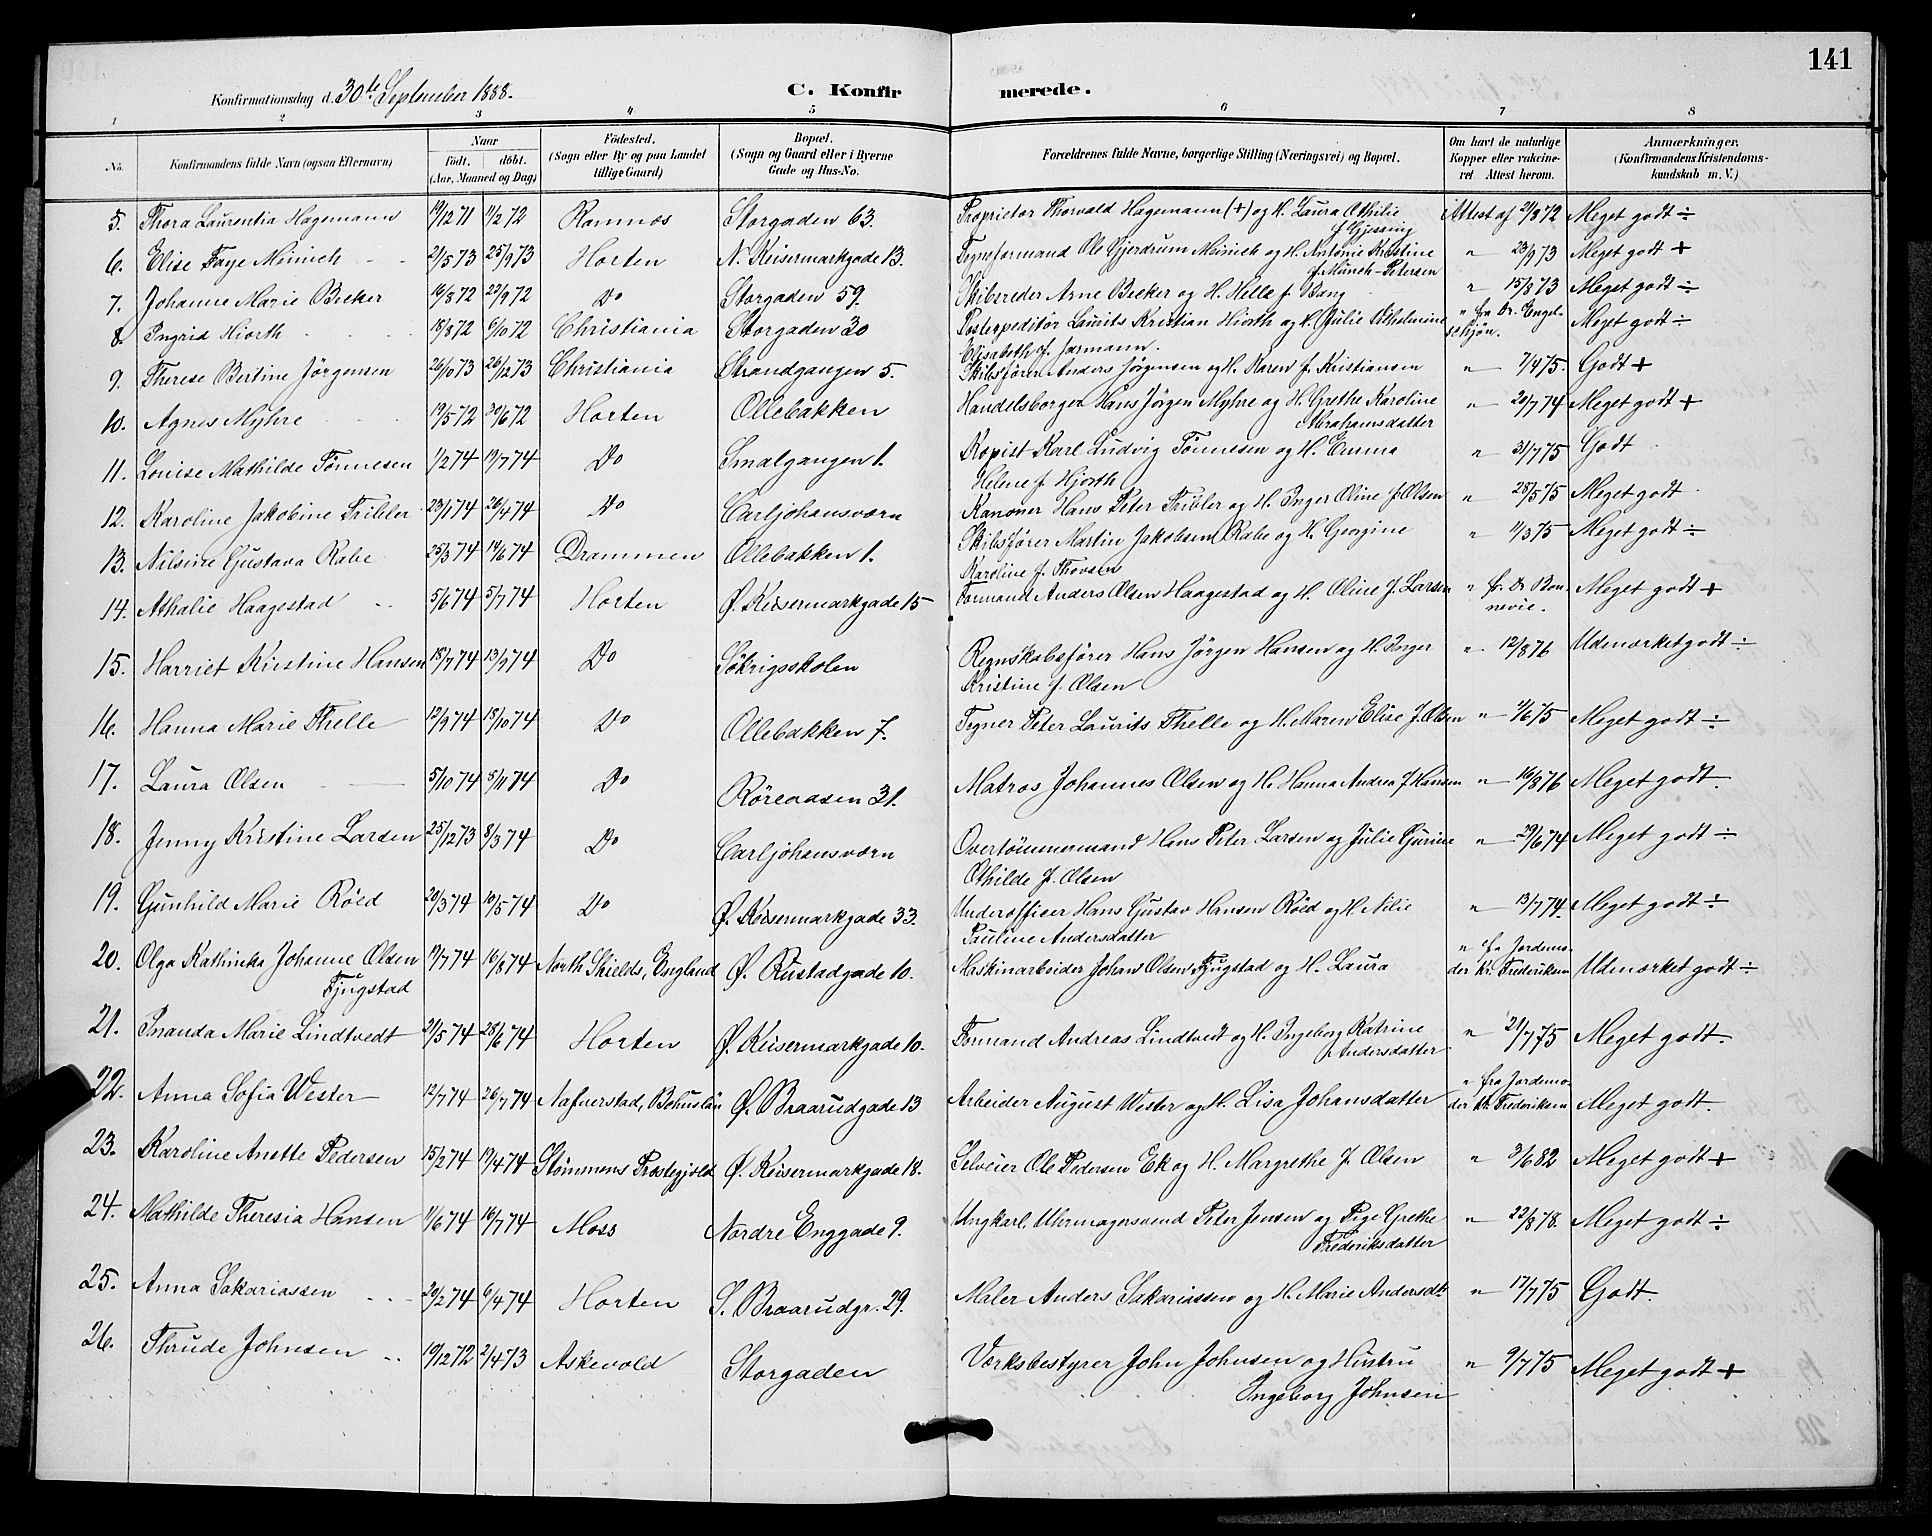 141
Konfirmationsdag d. 30te September 1888. C. Konfirmerede.
1 2 3 4 5 6 7 8
No. Konfirmandens fulde Navn (ogsaa Efternavn) Naar födt. döbt. (Aar, Maaned og Dag) Födested. (Sogn eller By og paa Landet tillige Gaard) Bopæl. (Sogn og Gaard eller i Byerne Gade og Hus-No. Forældrenes fulde Navne, borgerlige Stilling (Næringsvei) og Bopæl. Om havt de naturlige Kopper eller vakcineret Attest herom. Anmærkninger. (Konfirmandens Kristendomskundskab m. V.)
5. Thora Laurentia Hagemann 19/12 71 11/2 72 Ramnæs Storgaden 63. Proprietær Thorvald Hagemann (+) og H. Laura Othilie Attest af 2/8 72 Meget godt ÷
f. Gjessing
6. Elise Faye Meinich 21/5 73 25/9 73 Horten N. Keisermarkgade 13. Tegneformand Ole Gjerdrum Meinich og H. Antonie Kristine " 23/9 73 Meget godt +
f. Münch-Petersen
7. Johanne Marie Becker 16/8 72 22/9 72 Do Storgaden 59. Skibsreder Arne Becker og H. Helle f. Bang " 15/8 73 Meget godt ÷
8. Ingrid Hiorth 18/8 72 6/10 72 Christiania Storgaden 30 Postexpeditör Laurits Kristian Hiorth og H. Julie Vilhelmine " fra Dr. Engel- Meget godt ÷
Elisabeth f. Jarmann. schjøn.
9. Therese Bertine Jörgensen 26/10 73 26/12 73 Christiania Strandgangen 5. Skibsförer Anders Jörgensen og H. Karen f. Kristiansen " 7/4 75. Godt +
10. Agnes Myhre 19/5 72 30/6 72 Horten Ollebakken Handelsborger Hans Jörgen Myhre og H. Grethe Karoline " 20/7 74 Meget godt +
Abrahamsdatter
11. Louise Mathilde Tönnesen 1/2 74 19/7 74 Do Smalgangen 1. Kopist Karl Ludvig Tönnesen og H. Emma " 31/7 75 Godt
Helene f. Hjorth
12. Karoline Jakobine Tribler 23/1 74 26/4 74 Do Carljohansværn Kanoner Hans Peter Tribler og H. Inger Oline f. Olsen " 28/5 75 Meget godt
13. Nilsine Gustava Rabe 25/3 74 14/6 74 Drammen Ollebakken 1. Skibsförer Martin Jakobsen Rabe og H. Georgine " 11/3 75 Meget godt ÷
Karoline f. Thovsen
14. Athalie Haagestad 5/6 74 5/7 74 Horten Ø. Keisermarkgade 15 Formand Anders Olsen Haagestad og H. Oline f. Larsen " fr. Dr Bon- Meget godt +
nevie.
15. Harriet Kristine Hansen 18/7 74 13/9 74 Do Søkrigsskolen Regnskabsfører Hans Jörgen Hansen og H. Inger " 12/8 76 Udmærket godt ÷
Kristine f. Olsen
16. Hanna Marie Thelle 12/9 74 18/10 74 Do Ollebakken 7. Tegner Peter Laurits Thelle og H. Maren Elise f. Olsen " 11/6 75 Meget godt ÷
17. Laura Olsen 5/10 74 5/11 74 Do Röreaasen 31. Matros Johannes Olsen og H. Hanna Andrea f. Hansen " 16/8 76 Meget godt.
18. Jenny Kristine Larsen 25/12 73 8/3 74 Do Carljohansværn Overtömmermand Hans Peter Larsen og Julie Gurine " 29/6 74 Meget godt ÷
Othilde f. Olsen
19. Gunhild Marie Röed 20/3 74 10/5 74 Do Ø. Keisermarkgade 33. Underofficer Hans Gustav Hansen Röed og H. Nilie " 13/7 74. Meget godt ÷
Pauline Andersdatter
20. Olga Kathinka Johanne Olsen 19/7 74 16/8 74 North Shields, England Ø. Rustadgade 10. Maskinarbeider Johan Olsen Fjugstad og H. Laura " fra Jordemo- Udmærket godt ÷
Fjugstad der Kr. Frederiksen
21. Inanda Marie Lindtvedt 21/5 74 28/6 74 Horten Ø. Keisermarkgade 10. Formand Andreas Lindtvedt og H. Ingeborg Katrine " 21/7 75 Meget godt.
Andersdatter
22. Anna Sofia Wester 12/7 74 26/7 74 Nafverstad, Bohuslän Ø. Braarudgade 13 Arbeider August Wester og H. Lisa Johansdatter " fra Jordemo- Meget godt.
der Kr. Frederiksen
23. Karoline Anette Pedersen 15/2 74 19/4 74 Strømmens Præstegjeld Ø. Keisermarkgade 18. Selveier Ole Pedersen Ek og H. Margrethe f. Olsen " 3/6 82 Meget godt +
24. Mathilde Theresia Hansen 11/6 74 16/7 74 Moss Nordre Enggade 9. Ungkarl, Uhrmagersvend Peter Jensen og Pige Grethe " 22/8 78. Meget godt ÷
Frederiksdatter
25. Anna Sakariassen 20/2 74 6/4 74 Horten S. Braarudgr. 29. Maler Anders Sakariassen og H. Marie Andersdt. " 17/7 75 Godt.
26. Thrude Johnsen 19/12 72 2/4 73 Askevold Storgaden Værksbestyrer John Johnsen og Hustru " 9/7 75 Meget godt +
Ingeborg Johnsen